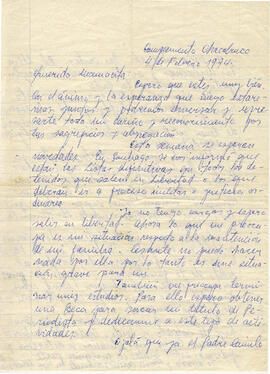 Campamento Chacabuco
4 de Febrero 1974.
Querida Mamacita:
Espero que estés muy bien
de ánimo y la esperanza que luego estare-
mos juntos y podremos abrazar y
todo mi cariño y reconocimiento por
los sacrificios y abnegación.
Esta semana se esperan
novedades. En Santiago se nos informó que
están las listas definitivas con todos los de-
tenidos que salen en libertad o que
deberán ir a proceso militar o justicia or-
dinaria.
Yo no tengo cargos y espero
salir en libertad. ahora lo que me preocu-
pa es mi situación respecto a la mantención
de mi familia. desde aquí no puedo hacer
nada por ellos por lo tanto es una situa-
ción grave para mí.
También me preocupa termi-
nar mis estudios. Para ello espero obtener
una Beca para sacar un título de Pe-
riodista y dedicarme a este tipo de acti-
vidades.
Ojalá que ya el Padre Camilo